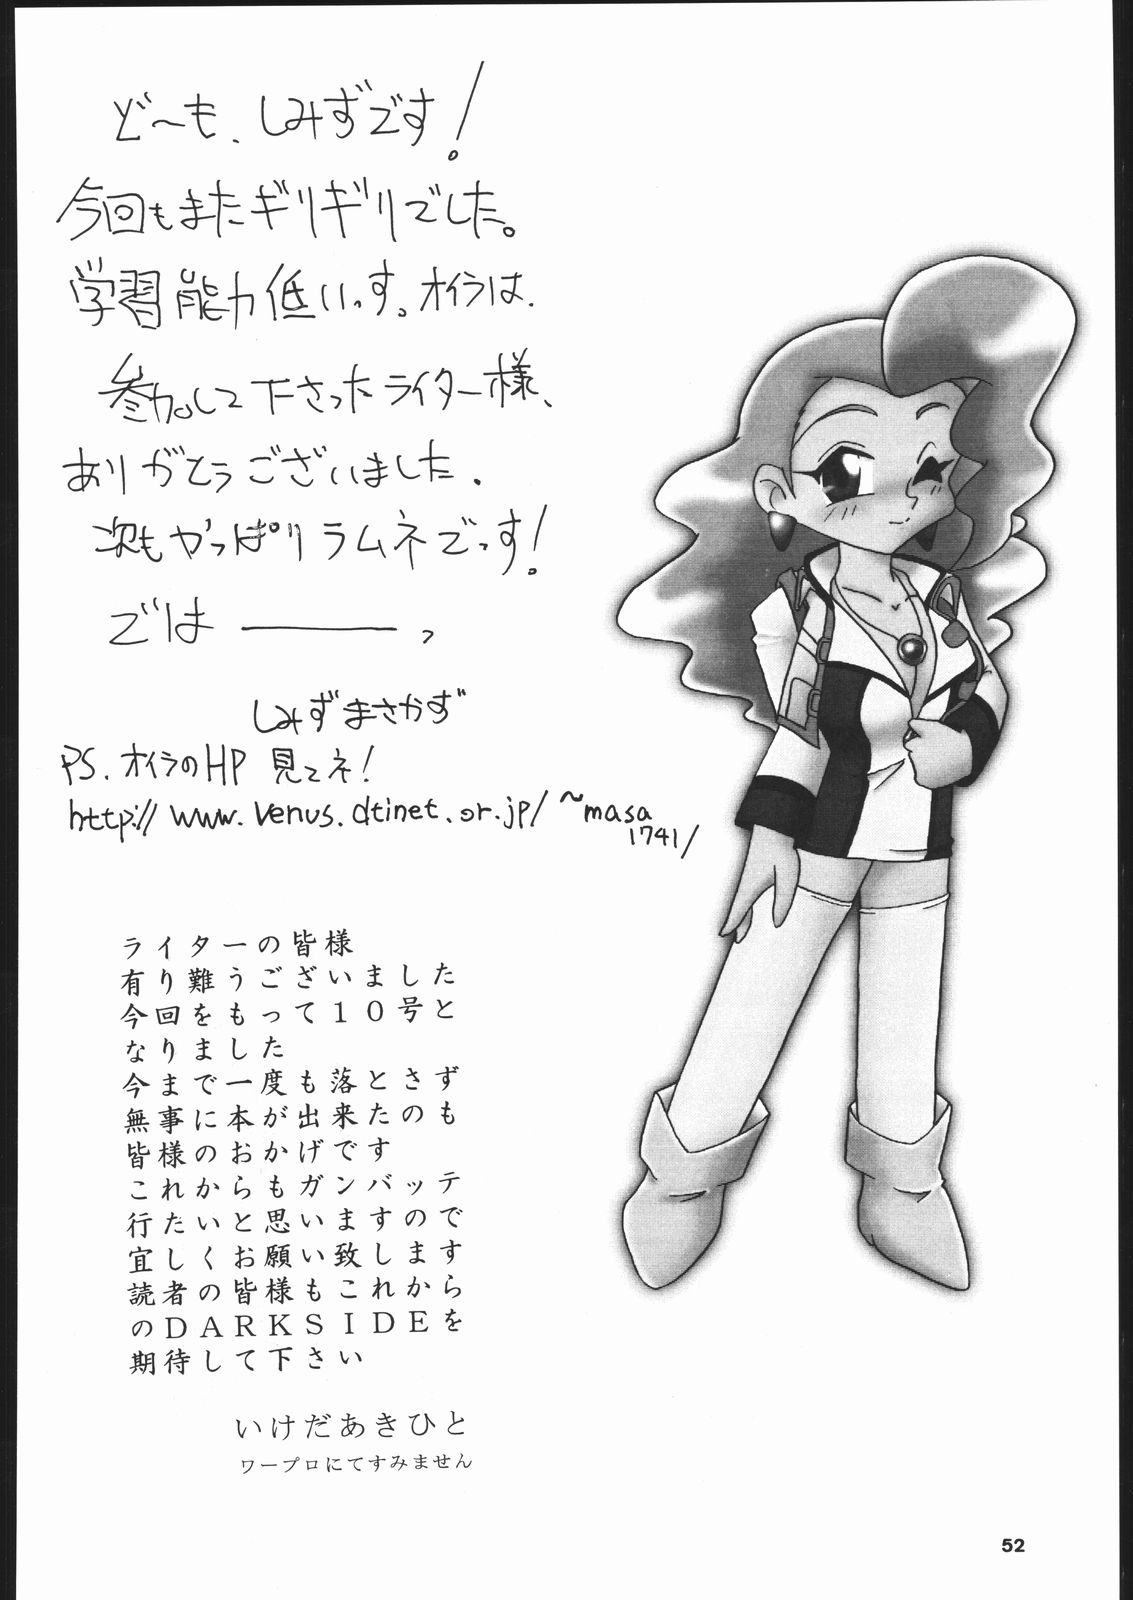 ど〜も、しみずです!
今回もまたギリギリでした。
学習能力低いっす。オイラは.
参加して下さったライター様、
ありがとうございました.
次もやっぱりラムネでっす!
では———,
しみずまさかず
PS.オイラのHP 見てネ!
http://www.venus.dtinet.or.jp/~masa
1741/
ライターの皆様
有り難うございました
今回をもって10号と
なりました
今まで一度も落とさず
無事に本が出来たのも
皆様のおかげです
これからもガンバッテ
行たいと思いますので
宜しくお願い致します
読者の皆様もこれから
のDARKSIDEを
期待して下さい
いけだあきひと
ワープロにてすみません
52